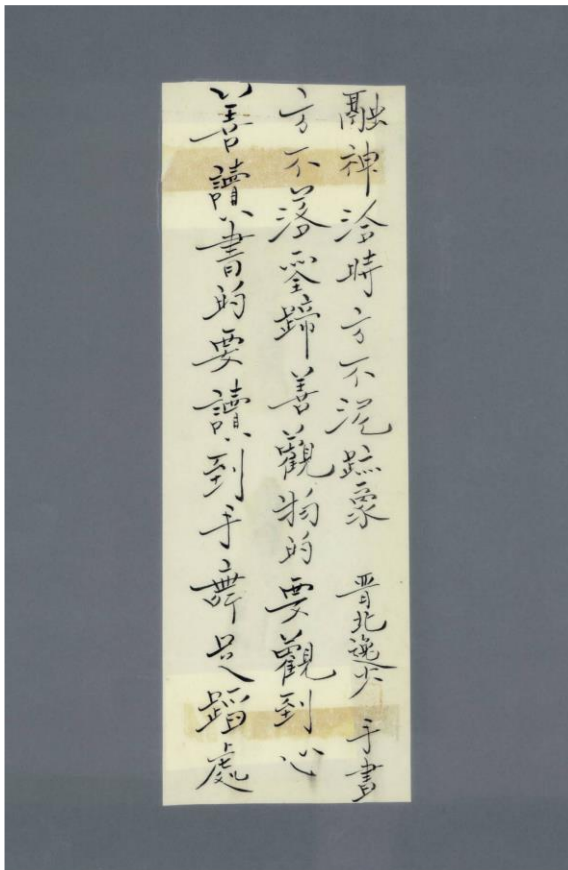 善讀書的要讀到手舞足蹈處
方不落筌蹄善觀物的要觀到心
融神洽時方不泥跡象 晋北逸 手書